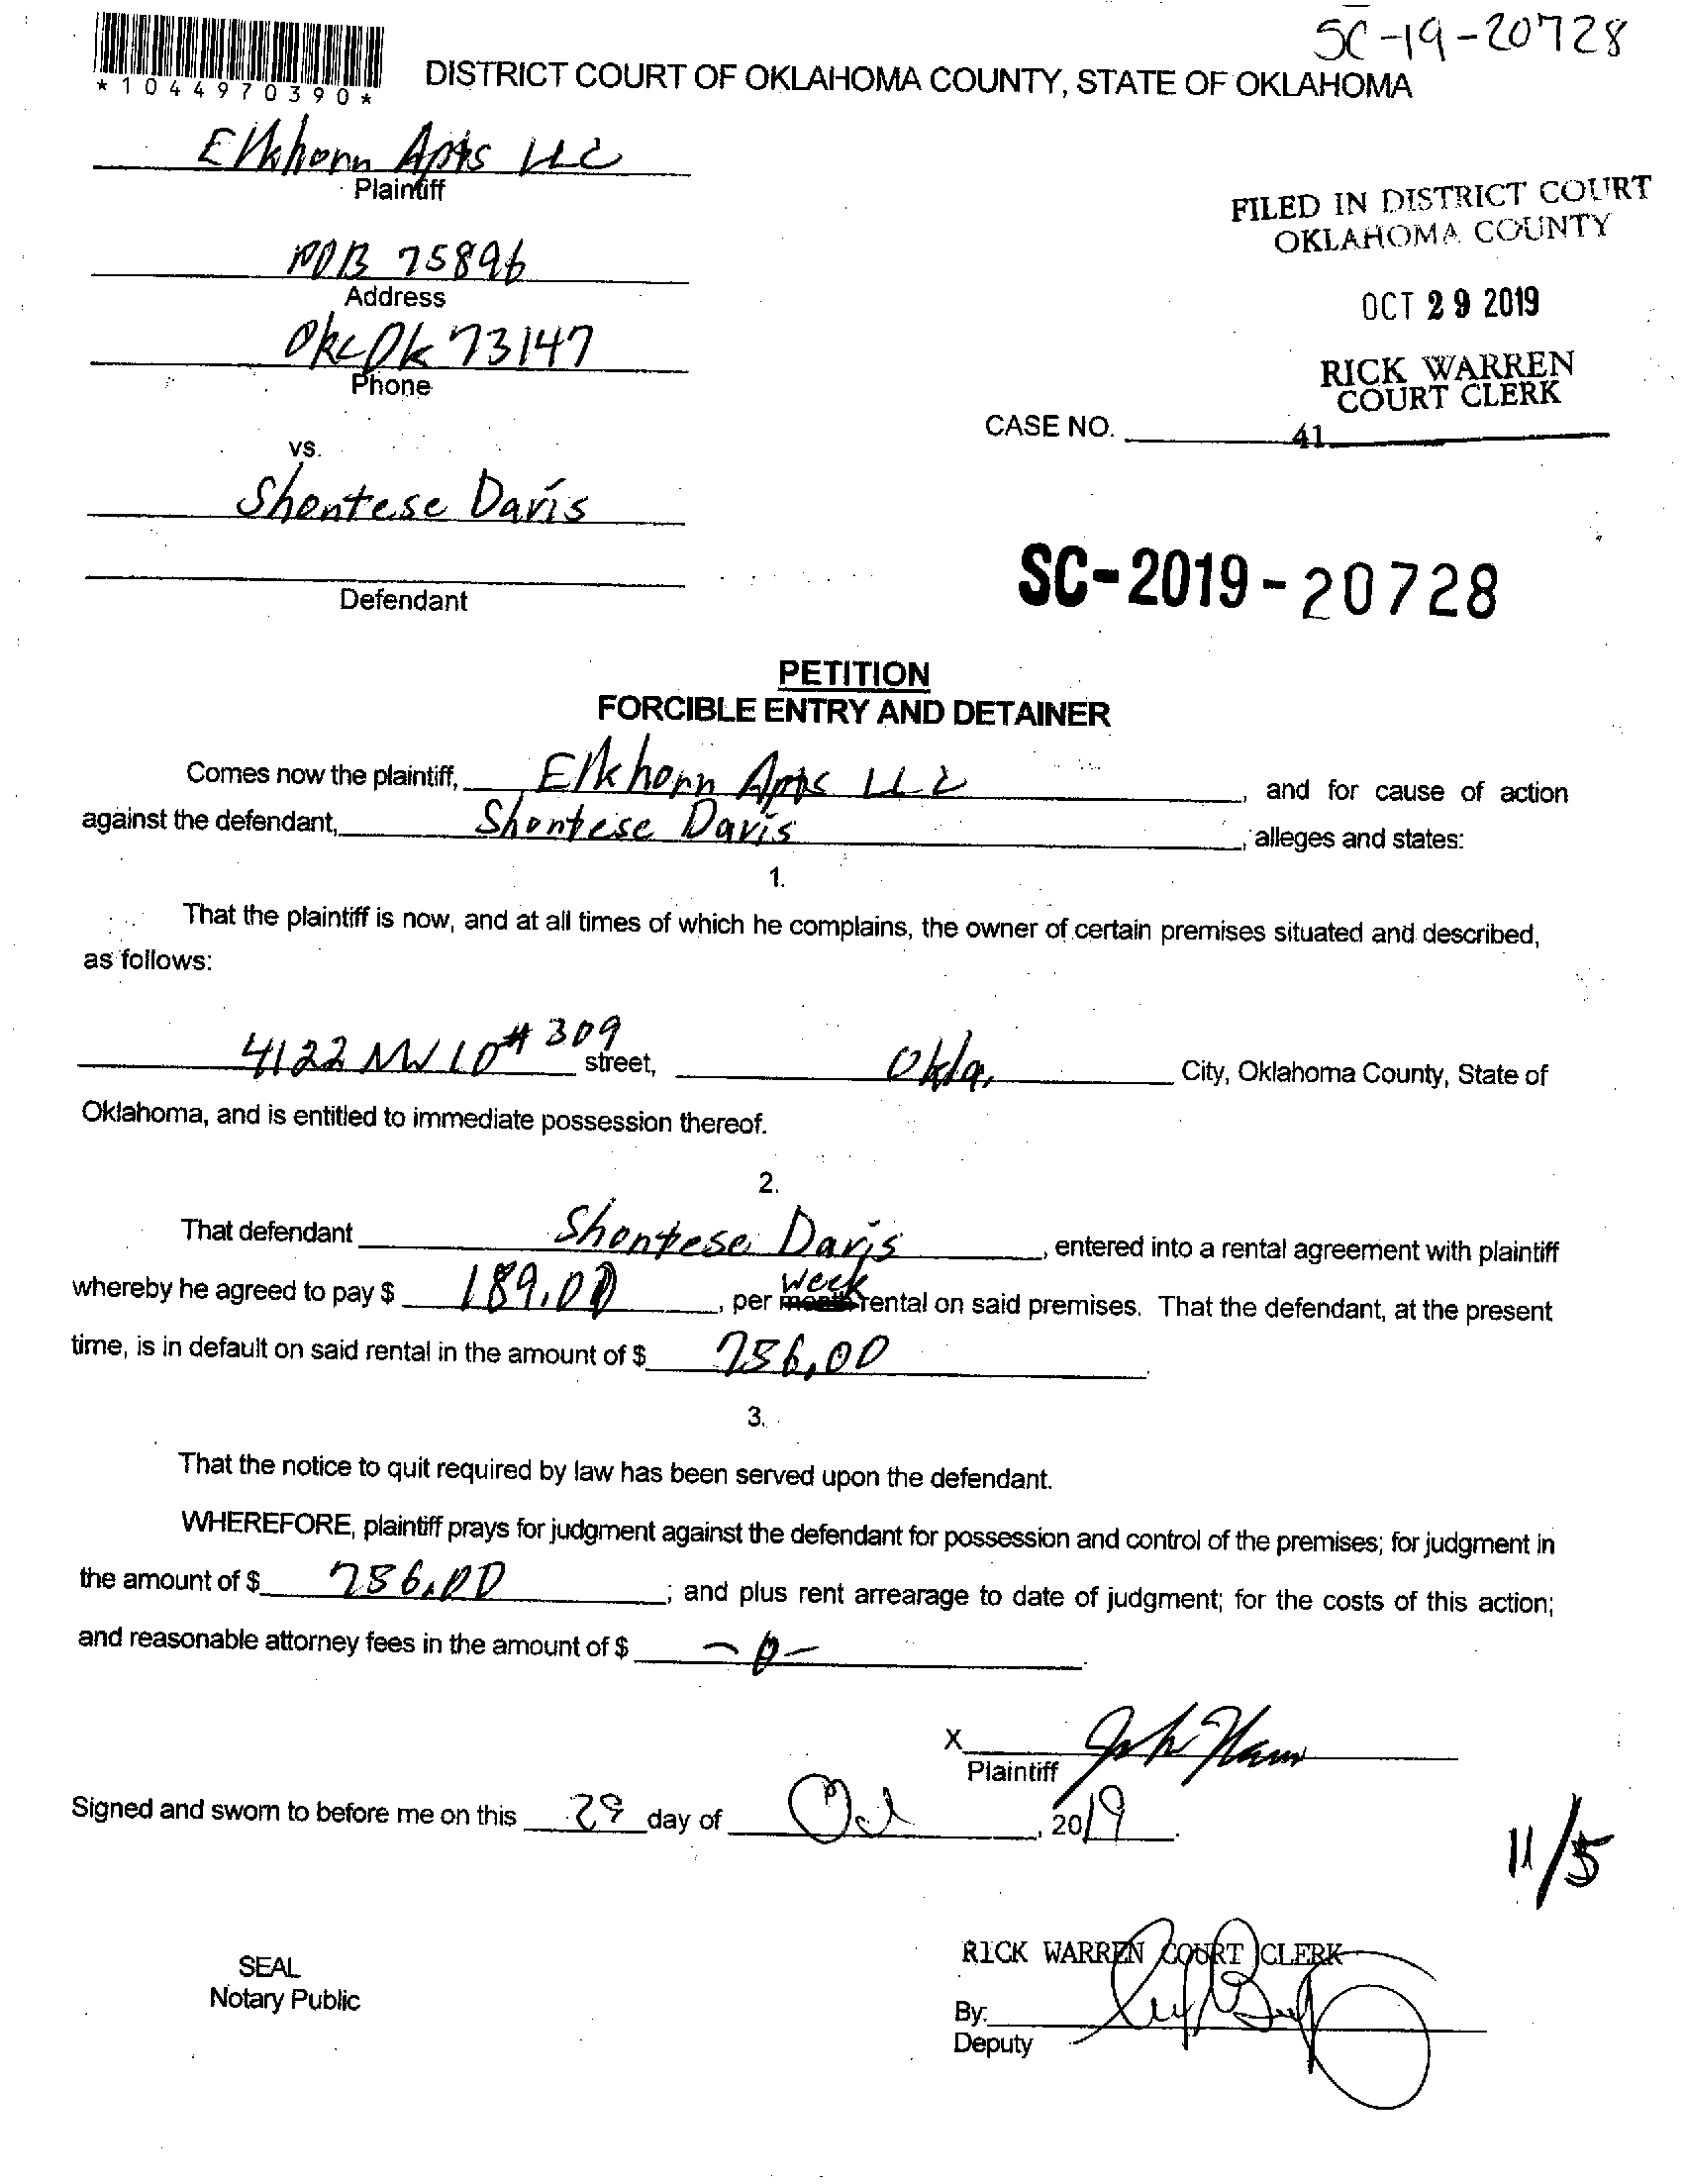 SC-19-20728
*1044970390*
DISTRICT COURT OF OKLAHOMA COUNTY, STATE OF OKLAHOMA
Elkhorn Apts LLC
Plaintiff
POB 75896
Address
Okc Ok 73147
Phone
FILED IN DISTRICT COURT
OKLAHOMA COUNTY
OCT 29 2019
RICK WARREN
COURT CLERK
CASE NO. 41
vs.
Shontese Davis
Defendant
SC-2019-20728
PETITION
FORCIBLE ENTRY AND DETAINER
Comes now the plaintiff, Elkhorn Apts LLC, and for cause of action
against the defendant, Shontese Davis, alleges and states:
1.
That the plaintiff is now, and at all times of which he complains, the owner of certain premises situated and described,
as follows:
4122 NW 10 #309 street, Okla. City, Oklahoma County, State of
Oklahoma, and is entitled to immediate possession thereof.
2.
That defendant Shontese Davis, entered into a rental agreement with plaintiff
whereby he agreed to pay $ 189.00, per month week rental on said premises. That the defendant, at the present
time, is in default on said rental in the amount of $ 756.00.
3.
That the notice to quit required by law has been served upon the defendant.
WHEREFORE, plaintiff prays for judgment against the defendant for possession and control of the premises; for judgment in
the amount of $ 756.00; and plus rent arrearage to date of judgment; for the costs of this action;
and reasonable attorney fees in the amount of $ -0-.
X
Plaintiff
Signed and sworn to before me on this 29 day of Oct, 2019.
11/5
SEAL
Notary Public
RICK WARREN COURT CLERK
By:
Deputy